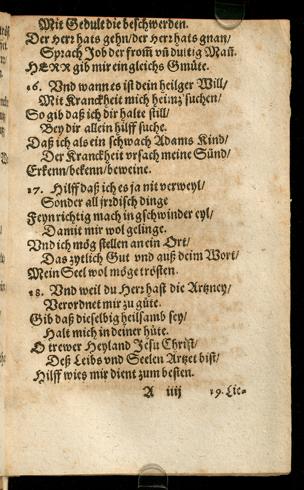 Mit Gedult die beschwerden.
Der Herr hats gehn/der Herr hats gnan/
Sprach Job der from̃ vñ dultig Mañ.
HERR gib mir ein gleichs Gmüte.
16. Vnd wann es ist dein heilger Will/
Mit Kranckheit mich heimzˢuchen/
So gib daß ich dir halte still/
Bey dir allein hilff suche.
Daß ich als ein schwach Adams Kind/
Der Kranckheit vrsach meine Sünd/
Erkenn/bekenn/beweine.
17. Hilff daß ich es ja nit verweyl/
Sonder all jrdisch dinge
Feyn richtig mach in gschwinder eyl/
Damit mir wol gelinge.
Vnd ich mög stellen an ein Ort/
Das zytlich Gut vnd auß deim Wort/
Mein Seel wol möge trösten.
18. Vnd weil du Herr hast die Artzney/
Verordnet mir zu güte.
Gib daß dieselbig heilsamb sey/
Halt mich in deiner hüte.
O trewer Heyland Jesu Christ/
Deß Leibs vnd Seelen Artzet bist/
Hilff wies mir dient zum besten.
A iiij 19. Lie-